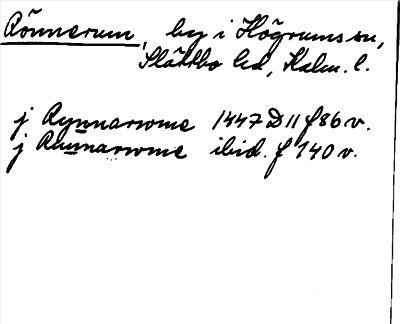 Rönnerum, by i Högrums sn,
Slättbo hd, Kalm. l.
j Rynnarwme 1447 D 11 f 86 v.
j Runnarwme ibid. f 140 v.